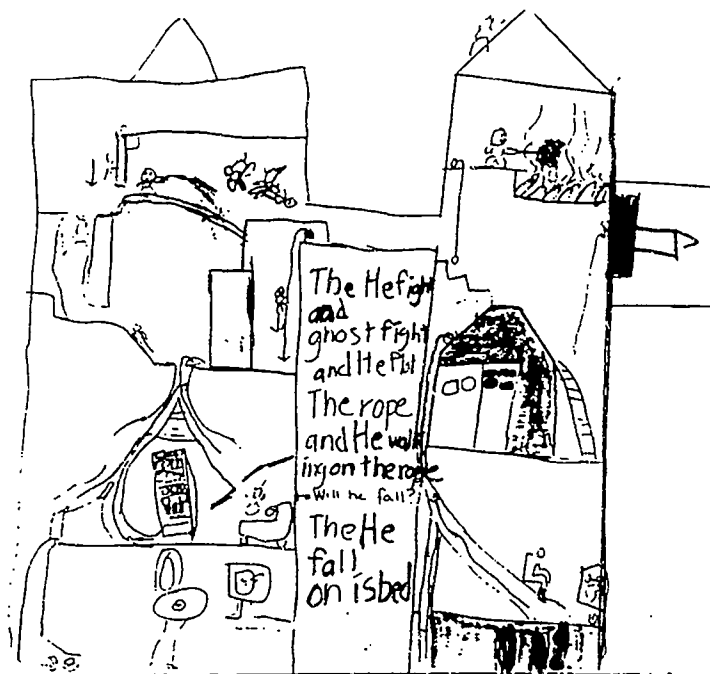 The He fight
and
ghost fight
and He Put
The rope
and He walk
ing on the rope
Will he fall?
The He
fall
on is bed